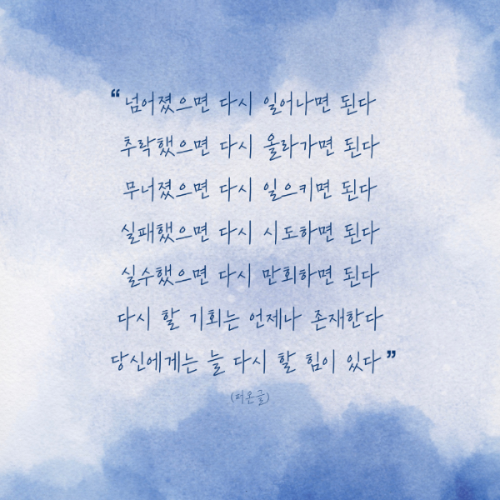 “넘어졌으면 다시 일어나면 된다
추락했으면 다시 올라가면 된다
무너졌으면 다시 일으키면 된다
실패했으면 다시 시도하면 된다
실수했으면 다시 만회하면 된다
다시 할 기회는 언제나 존재한다
당신에게는 늘 다시 할 힘이 있다”
(더온글)